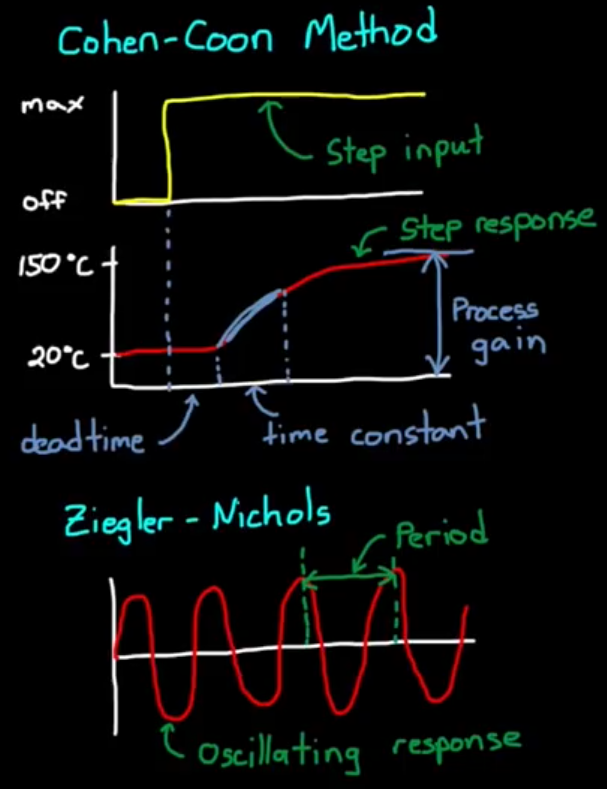 Cohen-Coon Method
max
Step input
off
Step response
150°C
Process
gain
20°C
deadtime
time constant
Ziegler-Nichols
Period
Oscillating response